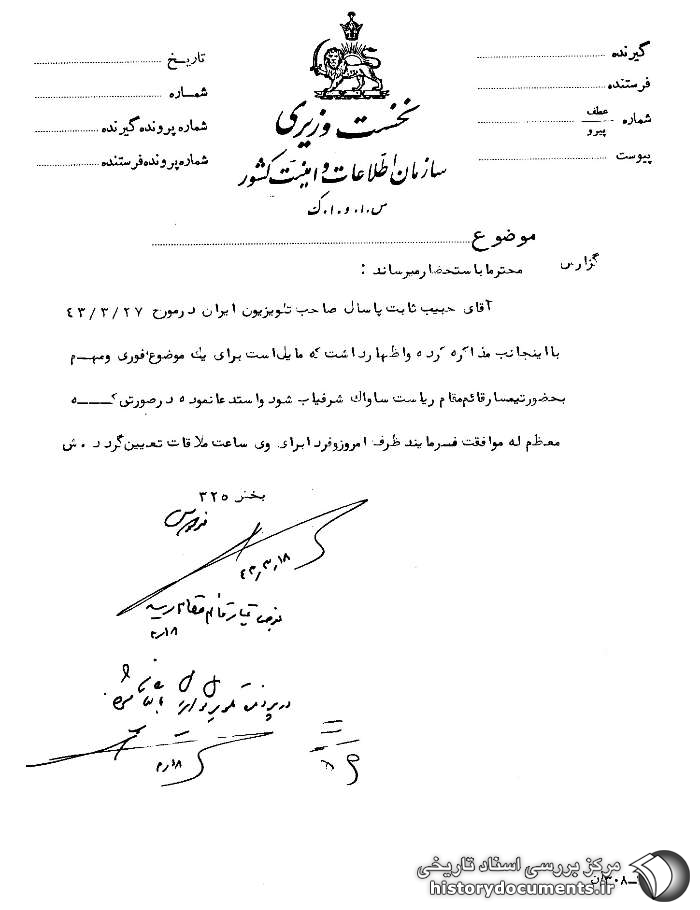 گیرنده
فرستنده
شماره عطف پیرو
پیوست
نخست وزیری
سازمان اطلاعات و امنیت کشور
س.ا.و.ا.ک
تاریخ
شماره
شماره پرونده گیرنده
شماره پرونده فرستنده
موضوع
گزارش
محترما باستحضار میرساند :
آقای حبیب ثابت پاسال صاحب تلویزیون ایران در مورخ ۴۳/۳/۲۷
با اینجانب مذاکره کرده و اظهار داشت که مایل است برای یک موضوع فوری و مهم
بحضور تیمسار قائم مقام ریاست ساواک شرفیاب شود و استدعا نموده در صورتی کـــه
معظم له موافقت فرمایند ظرف امروز و فردا برای وی ساعت ملاقات تعیین گردد . ش
بخش ۳۲۵
۴۳٫۳٫۱۸
قائم مقام
۳٫۱۸
۳٫۱۸
۳۰۸-ن
مرکز بررسی اسناد تاریخی
historydocuments.ir